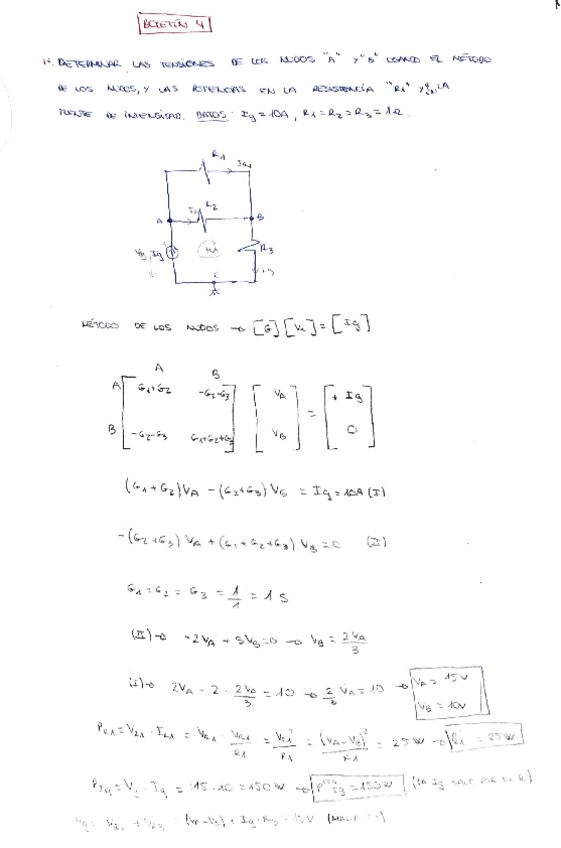 BOLETÍN 4
1º. DETERMINAR LAS TENSIONES DE LOS NUDOS "A" Y "B" USANDO EL MÉTODO
DE LOS NUDOS, Y LAS POTENCIAS EN LA RESISTENCIA "R1" Y EN LA
FUENTE DE INTENSIDAD. DATOS: Ig = 10A, R1 = R2 = R3 = 1Ω.
R1
IR1
R2
A
B
Vg
Ig
R3
Ig
MÉTODO DE LOS NUDOS → [G][Vu] = [Ig]
A B
A G1+G2 -G2-G3 VA + Ig
=
B -G2-G3 G1+G2+G3 VB 0
(G1+G2)VA - (G2+G3)VB = Ig = 10A (I)
-(G2+G3)VA + (G1+G2+G3)VB = 0 (II)
G1 = G2 = G3 = 1/1 = 1 S
(II)→ -2VA + 3VB = 0 → VB = 2VA/3
(I)→ 2VA - 2 · 2VA/3 = 10 → 2/3 VA = 10 → VA = 15V
VB = 10V
PR1 = VR1 · IR1 = VR1 · VR1/R1 = VR1²/R1 = (VA-VB)²/R1 = 25W → PR1 = 25W
PIg = Vg · Ig = 15 · 10 = 150W → Ig = 150W